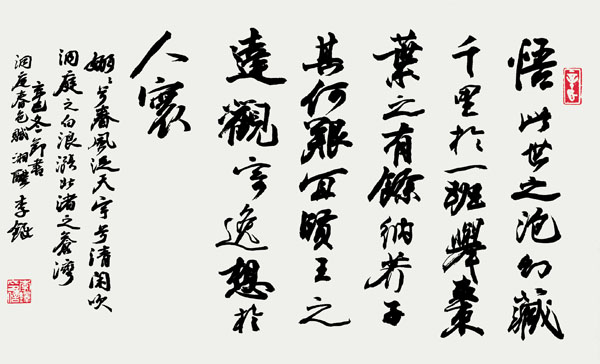 悟此世之泡幻藏
千里於一班舉棗
葉之有餘納芥子
其何艱宜賢王之
達觀寄逸想於
人寰
嫋〻兮春風泛天宇兮清閑吹
洞庭之白浪漲北渚之蒼灣
辛巳冬節書
洞庭春色賦湘醴李鐸